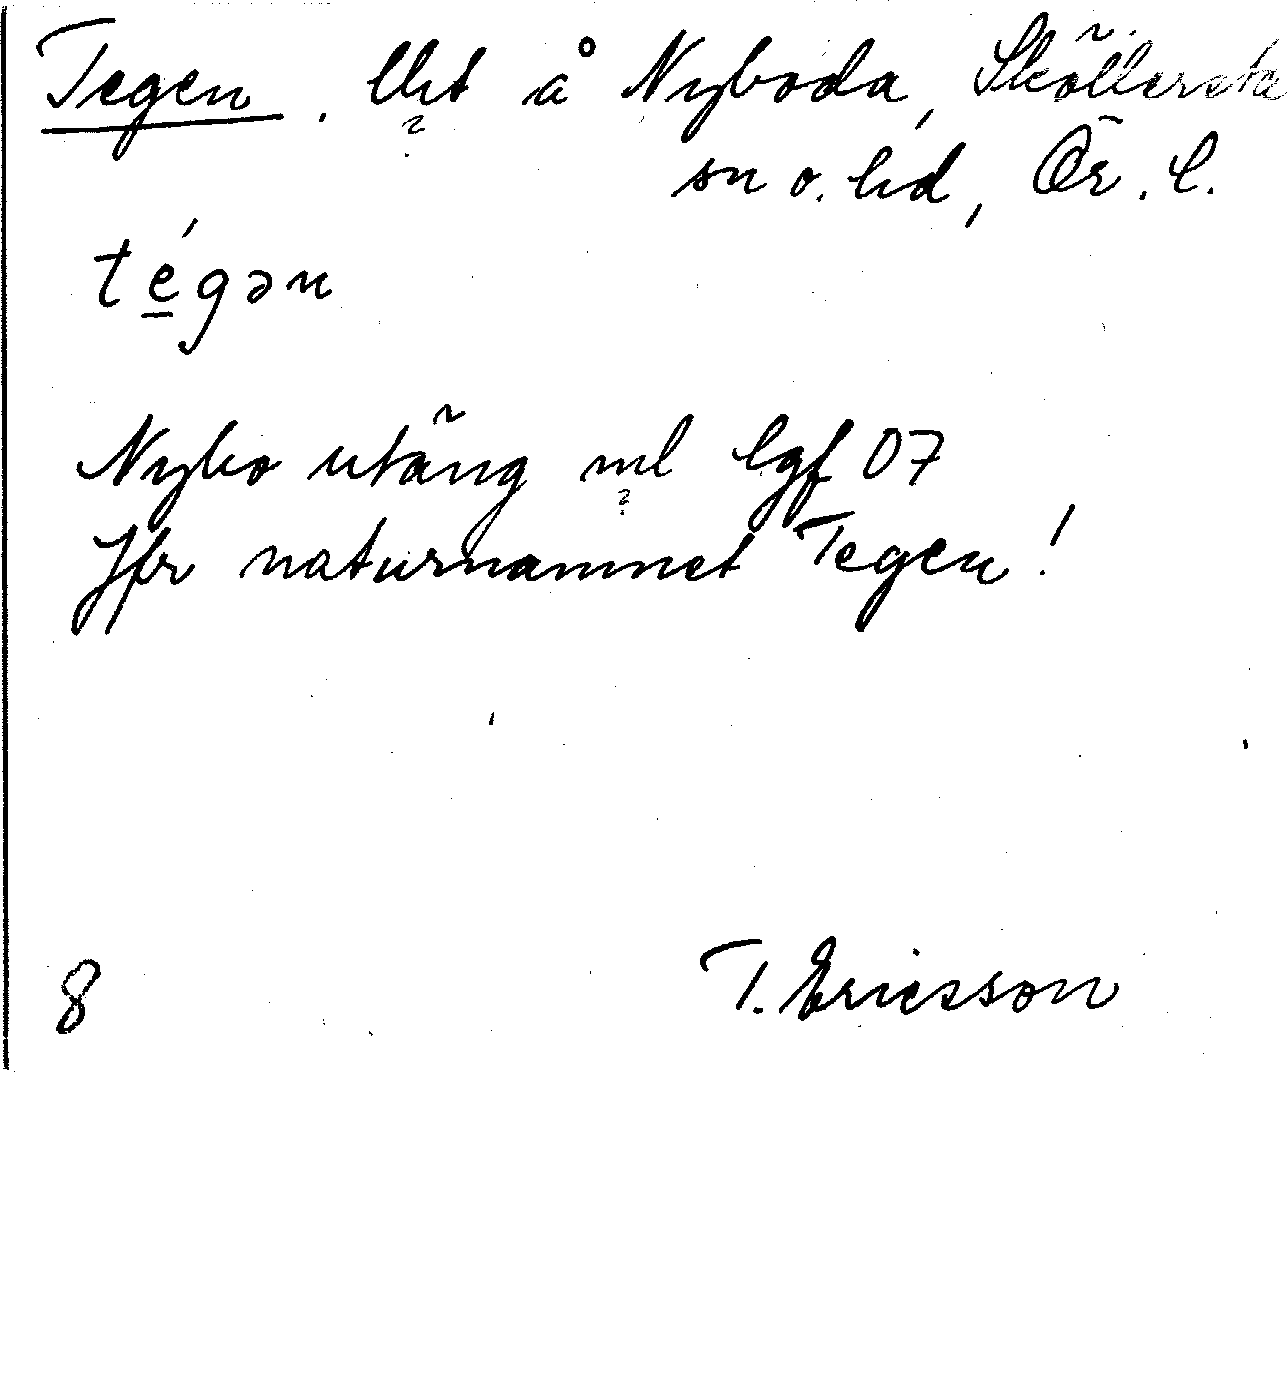 Tegen. lht å Nyboda, Sköllersta
sn o. hd, Ör. l.
tégən
Nybo utäng ml lgf 07
Jfr naturnamnet Tegen!
8 T. Ericsson